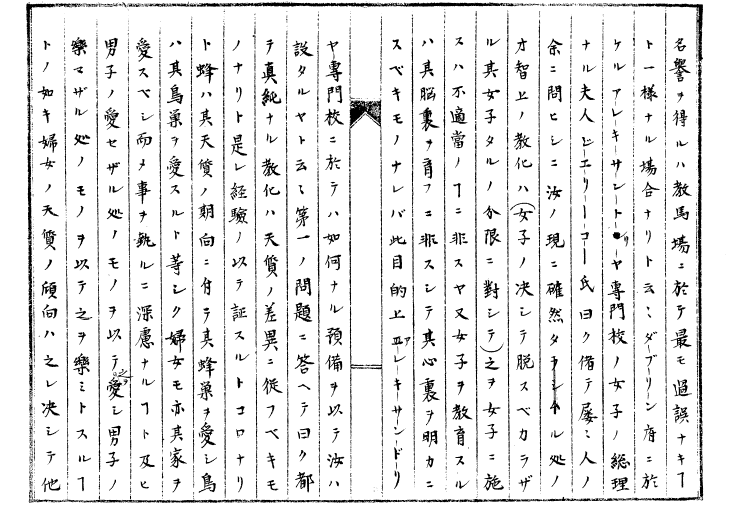 名譽ヲ得ルハ教馬場ニ於テ最モ過誤ナキヿ
ト一様ナル場合ナリト云々ダーブリン府ニ於
ケルアレキーサンドリーヤ専門校ノ女子ノ総理
ナル夫人ピエリーーコー氏曰ク偖テ屡々人ノ
余ニ問ヒシニ汝ノ現ニ確然タラシムル処ノ
才智上ノ教化ハ(女子ノ决シテ脱スベカラザ
ル其女子タルノ分限ニ對シテ)之ヲ女子ニ施
スハ不適當ノヿニ非スヤ又女子ヲ教育スル
ハ其脳裏ヲ育フニ非スシテ其心裏ヲ明カニ
スベキモノナレバ此目的上アレーキサーンドリ
ヤ専門校ニ於テハ如何ナル預備ヲ以テ汝ハ
設タルヤト云々第一ノ問題ニ答ヘテ曰ク都
テ真純ナル教化ハ天質ノ差異ニ從フベキモ
ノナリト是レ経驗ノ以テ証スルトコロナリ
ト蜂ハ其天質ノ朝向ニ付テ其蜂巣ヲ愛シ鳥
ハ其鳥巣ヲ愛スルト等シク婦女モ亦其家ヲ
愛スベシ而メ事ヲ執ルニ深慮ナルヿト及ヒ
男子ノ愛セザル処ノモノヲ以テ之ヲ愛シ男子ノ
樂マザル処ノモノヲ以テ之ヲ樂ミトスルヿ
トノ如キ婦女ノ天質ノ傾向ハ之レ决シテ他